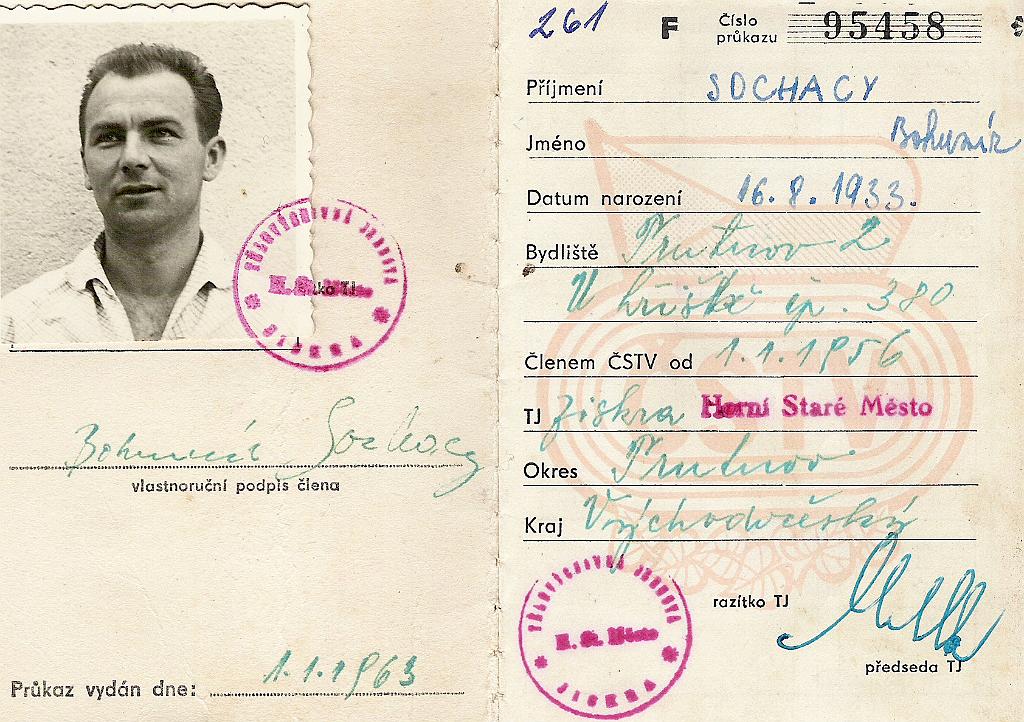 TĚLOVÝCHOVNÁ JEDNOTA
H. St. Město
JISKRA
Bohumír Sochacy
vlastnoruční podpis člena
Průkaz vydán dne: 1.1.1963
261 F Číslo průkazu 95458
Příjmení SOCHACY
Jméno Bohumír
Datum narození 16.8.1933.
Bydliště Trutnov 2
U hřiště čp. 380
Členem ČSTV od 1.1.1956
TJ Jiskra Horní Staré Město
Okres Trutnov
Kraj Východočeský
TĚLOVÝCHOVNÁ JEDNOTA
H. St. Město
JISKRA
razítko TJ
předseda TJ